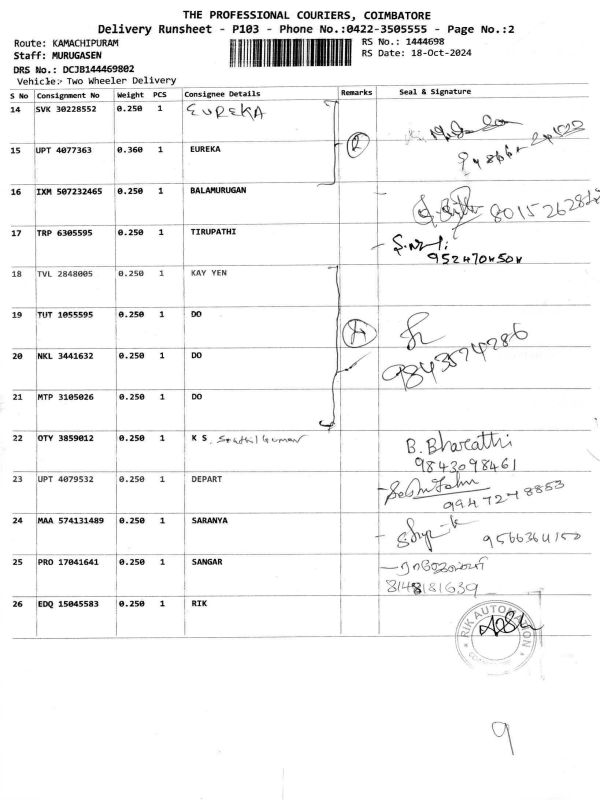 THE PROFESSIONAL COURIERS, COIMBATORE
Delivery Runsheet - P103 - Phone No.:0422-3505555 - Page No.:2
Route: KAMACHIPURAM RS No.: 1444698
Staff: MURUGASEN RS Date: 18-Oct-2024
DRS No.: DCJB144469802
Vehicle:- Two Wheeler Delivery
S No Consignment No Weight PCS Consignee Details Remarks Seal & Signature
14 SVK 30228552 0.250 1 EUREKA
15 UPT 4077363 0.360 1 EUREKA 2
16 IXM 507232465 0.250 1 BALAMURUGAN
17 TRP 6305595 0.250 1 TIRUPATHI
18 TVL 2848005 0.250 1 KAY YEN
19 TUT 1055595 0.250 1 DO 4
20 NKL 3441632 0.250 1 DO 9843574286
21 MTP 3105026 0.250 1 DO
22 OTY 3859012 0.250 1 K S. Senthil kumar B. Bharathi
9843098461
23 UPT 4079532 0.250 1 DEPART
9947278853
24 MAA 574131489 0.250 1 SARANYA
25 PRO 17041641 0.250 1 SANGAR
8148181639
26 EDQ 15045583 0.250 1 RIK RIK AUTOMATION
9